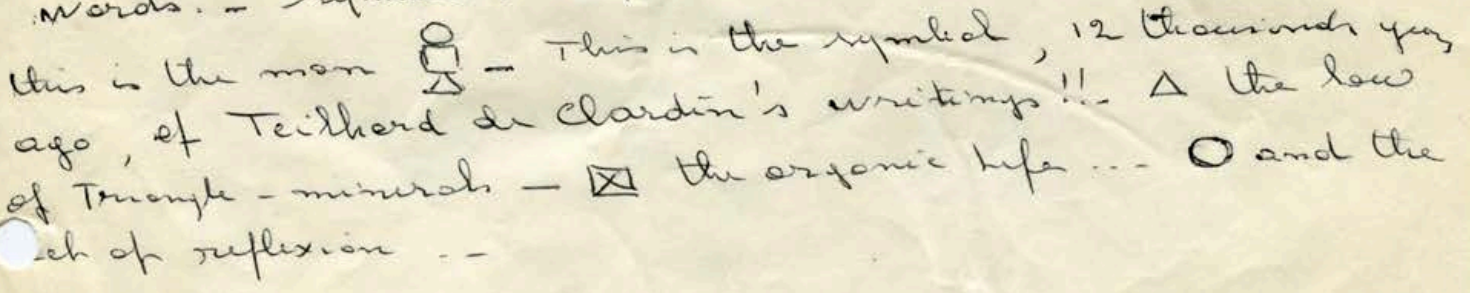 words. -
this is the man - This is the symbol, 12 thousands years
ago, of Teilhard de Clardin's writings!!. △ the law
of Triangle - minerals - ☒ the organic life ... O and the
of reflexion . -